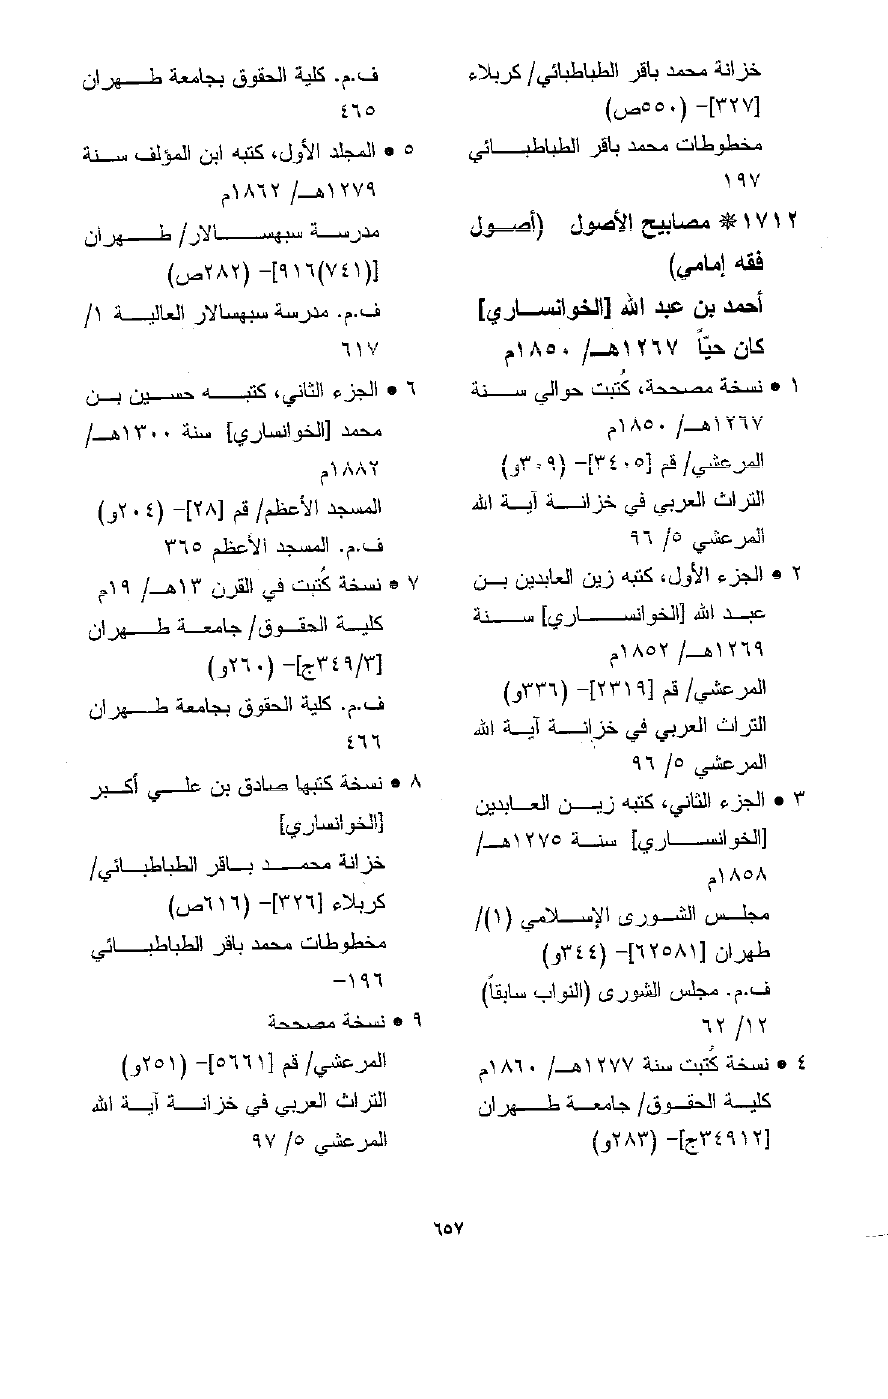 خزانة محمد باقر الطباطبائي/ كربلاء
[٣٢٧]- (٥٥٠ص)
مخطوطات محمد باقر الطباطبائي
١٩٧
١٧١٢* مصابيح الأصول (أصول
فقه إمامي)
أحمد بن عبد الله [الخوانساري]
كان حيّاً ١٢٦٧هـ/ ١٨٥٠م
١ • نسخة مصححة، كُتبت حوالي سنة
١٢٦٧هـ/ ١٨٥٠م
المرعشي/ قم [٣٤٠٥]- (٣٠٩و)
التراث العربي في خزانة آية الله
المرعشي ٥/ ٩٦
٢ • الجزء الأول، كتبه زين العابدين بن
عبد الله [الخوانساري] سنة
١٢٦٩هـ/ ١٨٥٢م
المرعشي/ قم [٢٣١٩]- (٣٣٦و)
التراث العربي في خزانة آية الله
المرعشي ٥/ ٩٦
٣ • الجزء الثاني، كتبه زين العابدين
[الخوانساري] سنة ١٢٧٥هـ/
١٨٥٨م
مجلس الشورى الإسلامي (١)/
طهران [٦٢٥٨١]- (٣٤٤و)
ف.م. مجلس الشورى (النواب سابقاً)
١٢/ ٦٢
٤ • نسخة كُتبت سنة ١٢٧٧هـ/ ١٨٦٠م
كلية الحقوق/ جامعة طهران
[٣٤٩١٢ج]- (٢٨٣و)
ف.م. كلية الحقوق بجامعة طهران
٤٦٥
٥ • المجلد الأول، كتبه ابن المؤلف سنة
١٢٧٩هـ/ ١٨٦٢م
مدرسة سبهسالار/ طهران
[(٧٤١)٩١٦]- (٢٨٢ص)
ف.م. مدرسة سبهسالار العالية ١/
٦١٧
٦ • الجزء الثاني، كتبه حسين بن
محمد [الخوانساري] سنة ١٣٠٠هـ/
١٨٨٢م
المسجد الأعظم/ قم [٢٨]- (٢٠٤و)
ف.م. المسجد الأعظم ٣٦٥
٧ • نسخة كُتبت في القرن ١٣هـ/ ١٩م
كلية الحقوق/ جامعة طهران
[٣٤٩/٣ج]- (٢٦٠و)
ف.م. كلية الحقوق بجامعة طهران
٤٦٦
٨ • نسخة كتبها صادق بن علي أكبر
[الخوانساري]
خزانة محمد باقر الطباطبائي/
كربلاء [٣٢٦]- (٦١٦ص)
مخطوطات محمد باقر الطباطبائي
١٩٦-
٩ • نسخة مصححة
المرعشي/ قم [٥٦٦١]- (٢٥١و)
التراث العربي في خزانة آية الله
المرعشي ٥/ ٩٧
٦٥٧